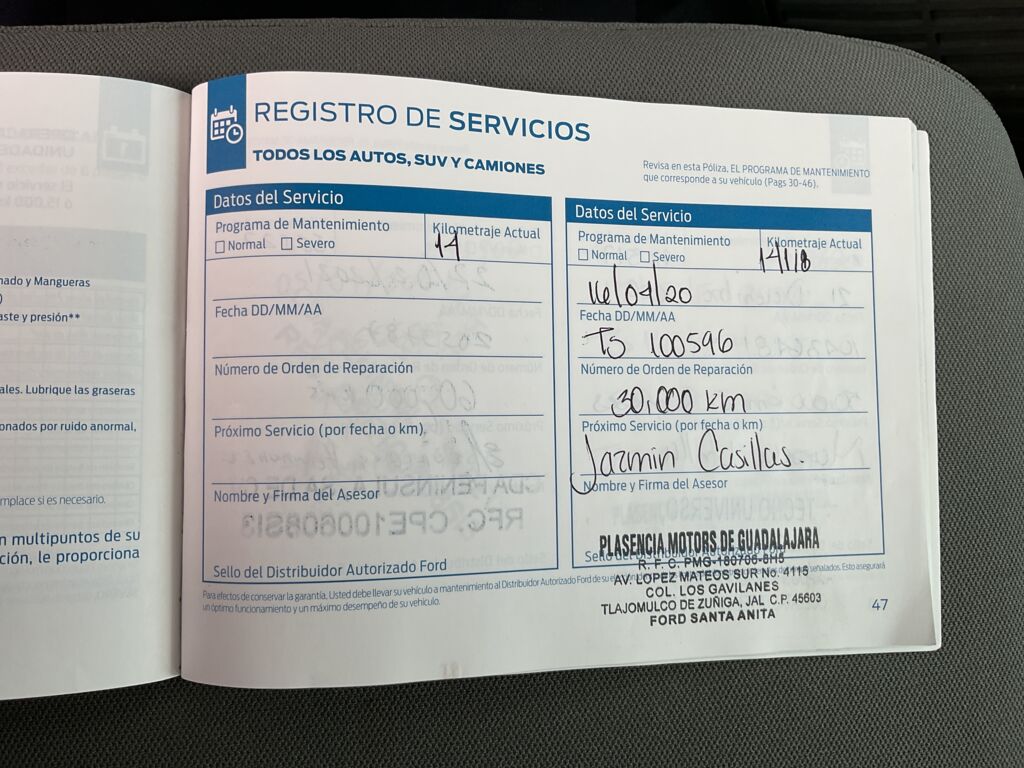 REGISTRO DE SERVICIOS
TODOS LOS AUTOS, SUV Y CAMIONES
Revisa en esta Póliza, EL PROGRAMA DE MANTENIMIENTO
que corresponde a su vehículo (Pags 30-46).
Datos del Servicio
Programa de Mantenimiento
Kilometraje Actual
Normal
Severo
14
Fecha DD/MM/AA
Número de Orden de Reparación
Próximo Servicio (por fecha o km).
Nombre y Firma del Asesor
Sello del Distribuidor Autorizado Ford
Datos del Servicio
Programa de Mantenimiento
Kilometraje Actual
Normal
Severo
14118
16/04/20
Fecha DD/MM/AA
TS 100596
Número de Orden de Reparación
30,000 km
Próximo Servicio (por fecha o km)
Jazmin Casillas.
Nombre y Firma del Asesor
PLASENCIA MOTORS DE GUADALAJARA
Sello del Distribuidor Autorizado Ford
R. F. C. PMG-180706-8H5
AV. LOPEZ MATEOS SUR No. 4115
COL. LOS GAVILANES
TLAJOMULCO DE ZUÑIGA, JAL C.P. 45603
FORD SANTA ANITA
Para efectos de conservar la garantía, Usted debe llevar su vehículo a mantenimiento al Distribuidor Autorizado Ford de su señalados. Esto asegurará
un óptimo funcionamiento y un máximo desempeño de su vehículo.
47
nado y Mangueras
aste y presión**
ales. Lubrique las graseras
onados por ruido anormal,
mplace si es necesario.
n multipuntos de su
ción, le proporciona